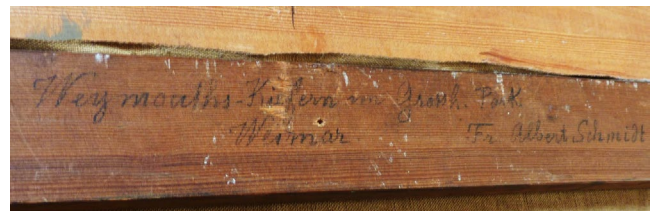 Weymouths-Kiefern im Grossh. Park
Weimar Fr. Albert Schmidt